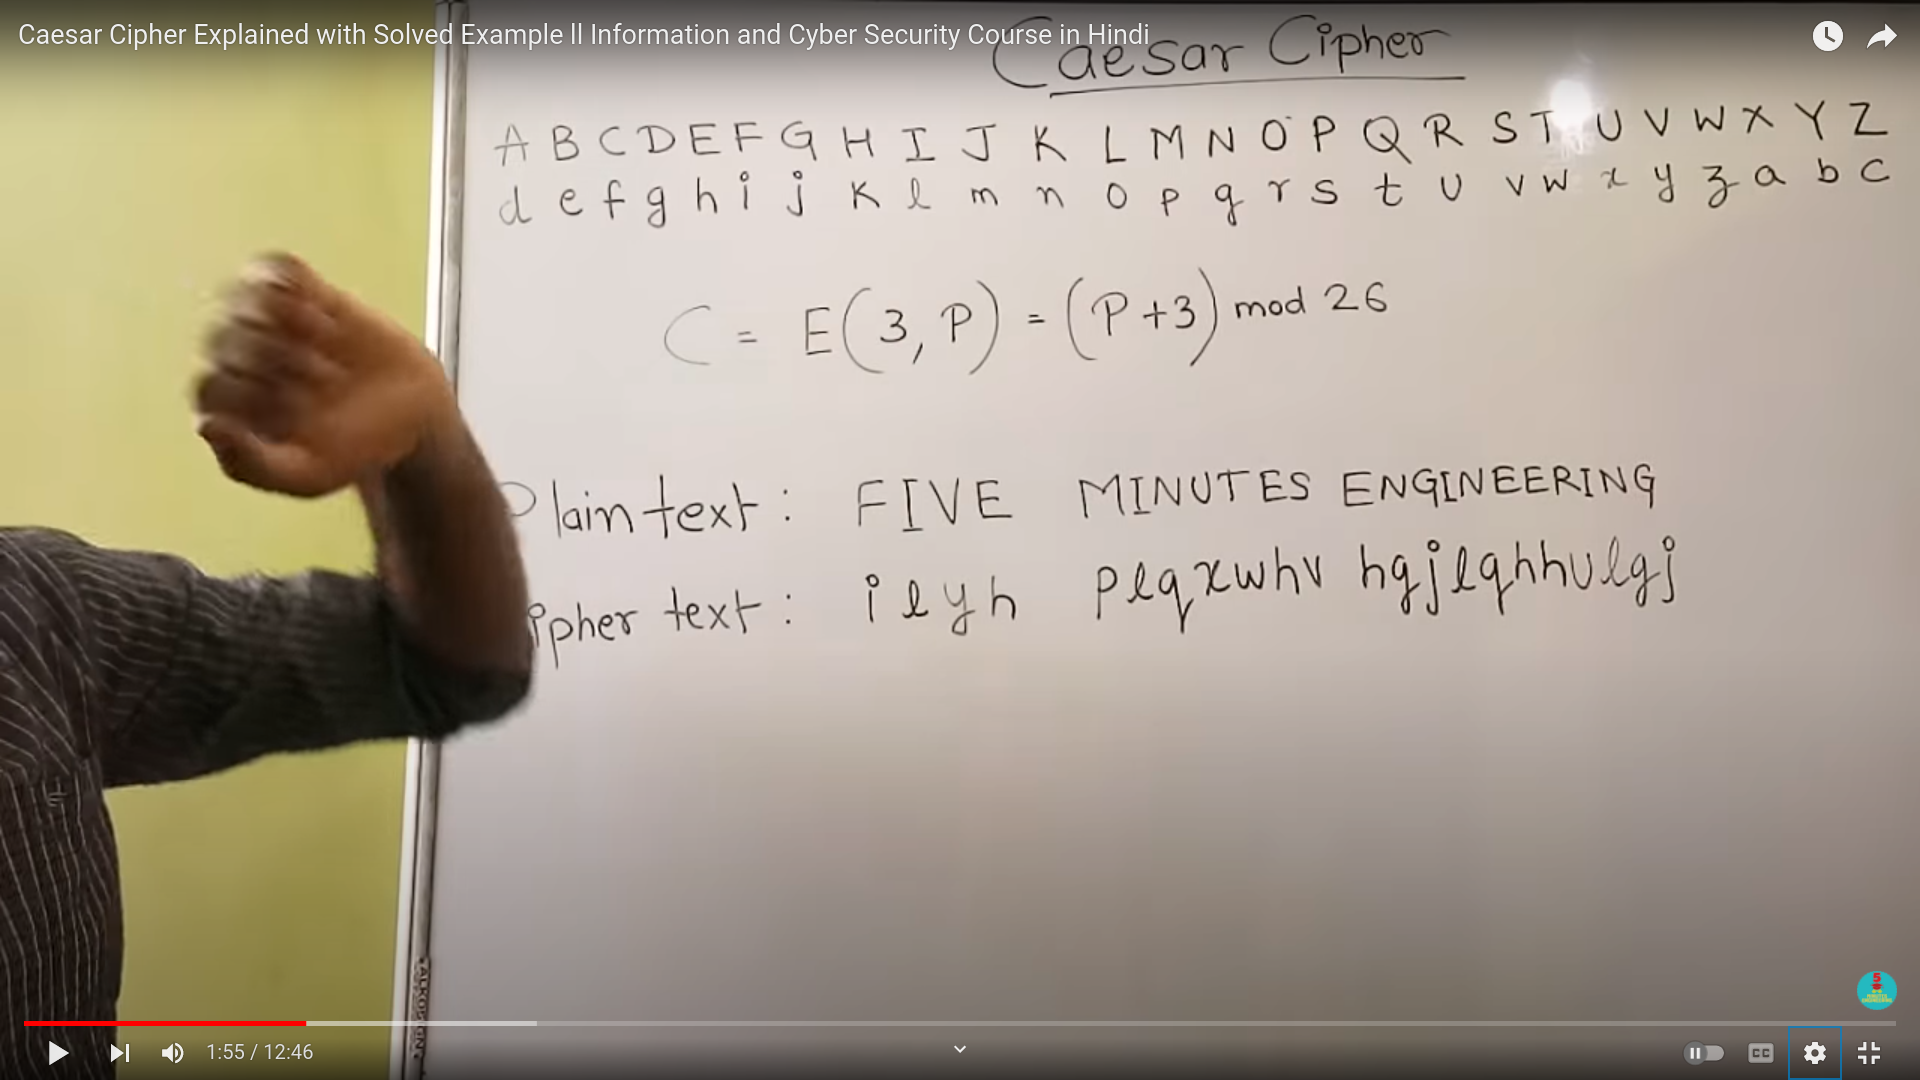 Caesar Cipher Explained with Solved Example ll Information and Cyber Security Course in Hindi
Caesar Cipher
A B C D E F G H I J K L M N O P Q R S T U V W X Y Z
d e f g h i j k l m n o p q r s t u v w x y z a b c
C = E(3, P) = (P+3) mod 26
Plain text : FIVE MINUTES ENGINEERING
ipher text : ilyh plqxwhv hgjlqhhulgj
1:55 / 12:46
CC